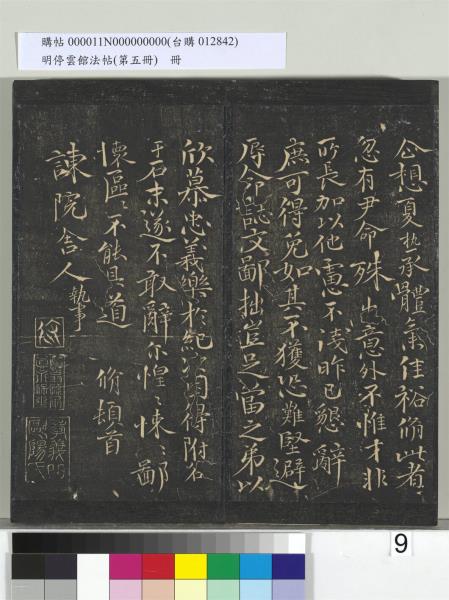 購帖 000011N000000000(台購 012842)
明停雲館法帖(第五冊) 冊
企想夏熱承體氣佳裕脩此者
忽有尹命殊出意外不惟才非
所長加以他慮不淺昨已懇辭
庶可得免如其不獲恐難堅避
辱命誌文鄙拙豈足當之弟以
欣慕忠義樂於紀次因得附名
于石末遂不敢辭尒惶〻悚〻鄙
懷區〻不能具道 脩頓首
諫院舍人執事
9